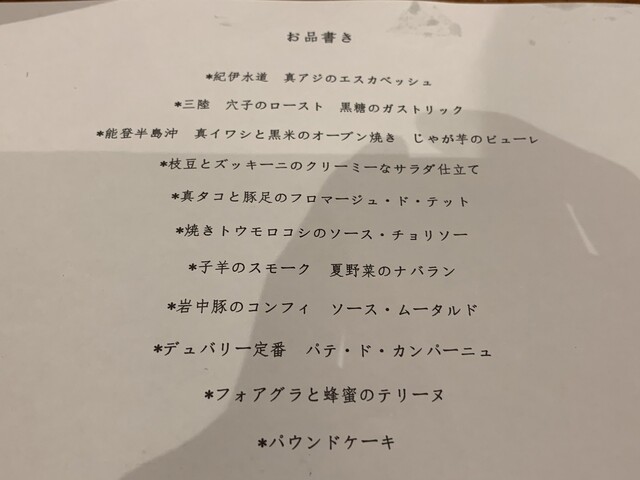 お品書き
*紀伊水道　真アジのエスカベッシュ
*三陸　穴子のロースト　黒糖のガストリック
*能登半島沖　真イワシと黒米のオーブン焼き　じゃが芋のピューレ
*枝豆とズッキーニのクリーミーなサラダ仕立て
*真タコと豚足のフロマージュ・ド・テット
*焼きトウモロコシのソース・チョリソー
*子羊のスモーク　夏野菜のナバラン
*岩中豚のコンフィ　ソース・ムータルド
*デュバリー定番　パテ・ド・カンパーニュ
*フォアグラと蜂蜜のテリーヌ
*パウンドケーキ